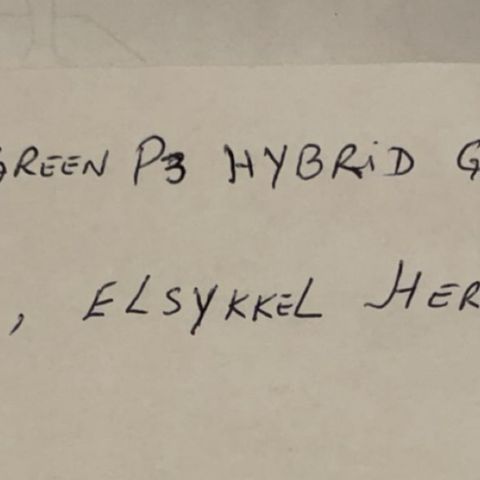 GREEN P3 HYBRID G
, ELSYKKEL HER